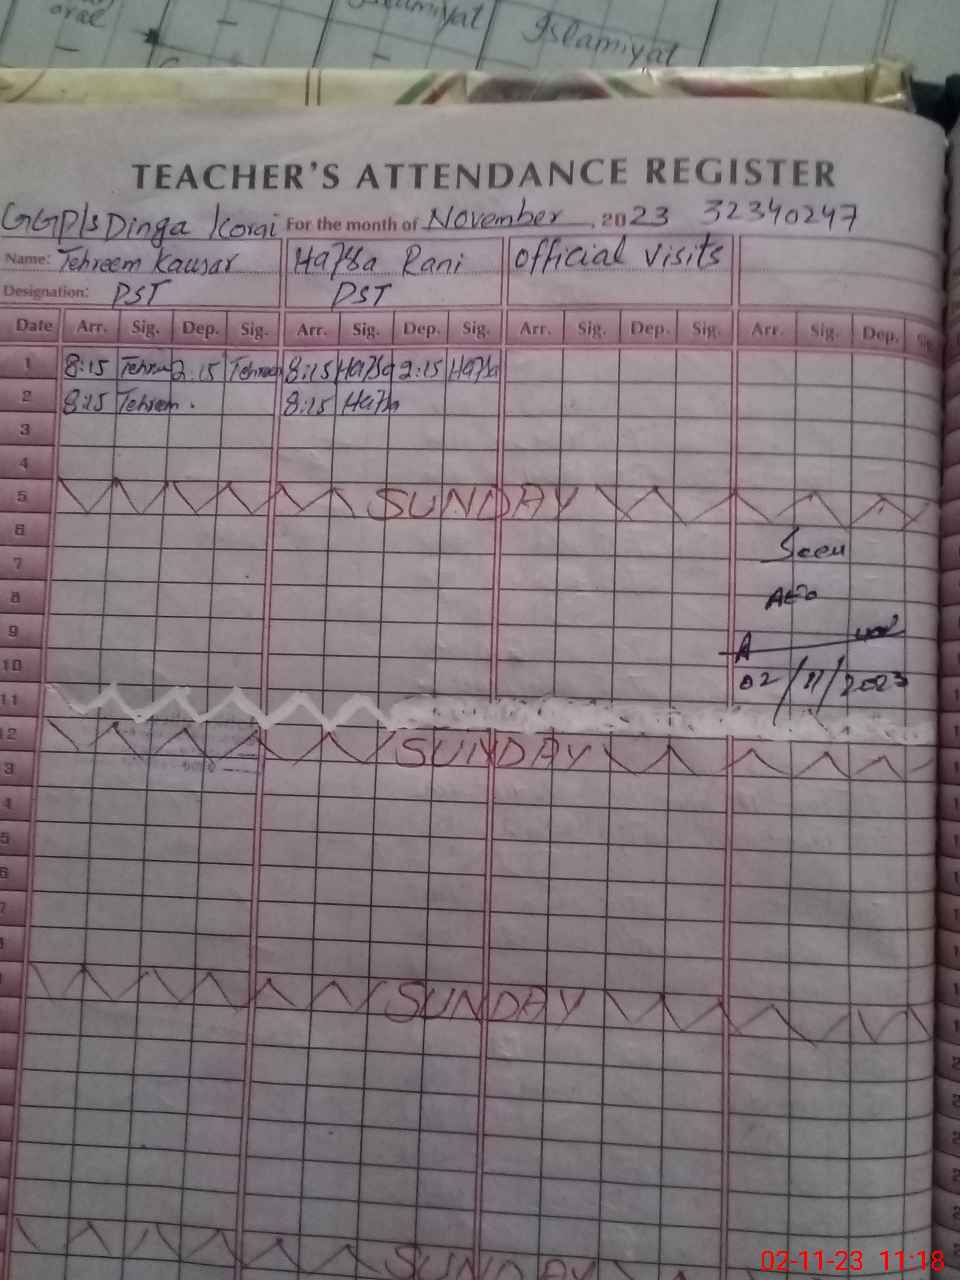 oral
Islamiyat
Islamiyat
TEACHER'S ATTENDANCE REGISTER
GGP/S Dinga Korai For the month of November, 2023 32340247
Name: Tehreem Kausar Hafsa Rani official visits
Designation: PST PST
Date Arr. Sig. Dep. Sig. Arr. Sig. Dep. Sig. Arr. Sig. Dep. Sig. Arr. Sig. Dep. Sig.
1 8:15 Tehreem 2:15 Tehreem 8:15 Hafsa 2:15 Hafsa
2 8:15 Tehreem 8:15 Hafsa
3
4
5 SUNDAY
6 Seen
7
8 AEO
9
10 02/11/2023
11
12 SUNDAY
3
4
5
6
7
SUNDAY
SUNDAY
02-11-23 11:18